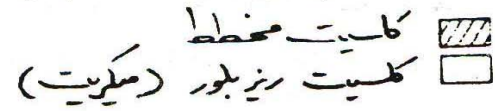 کلسیت مخطط
کلسیت ریز بلور (میکریت)